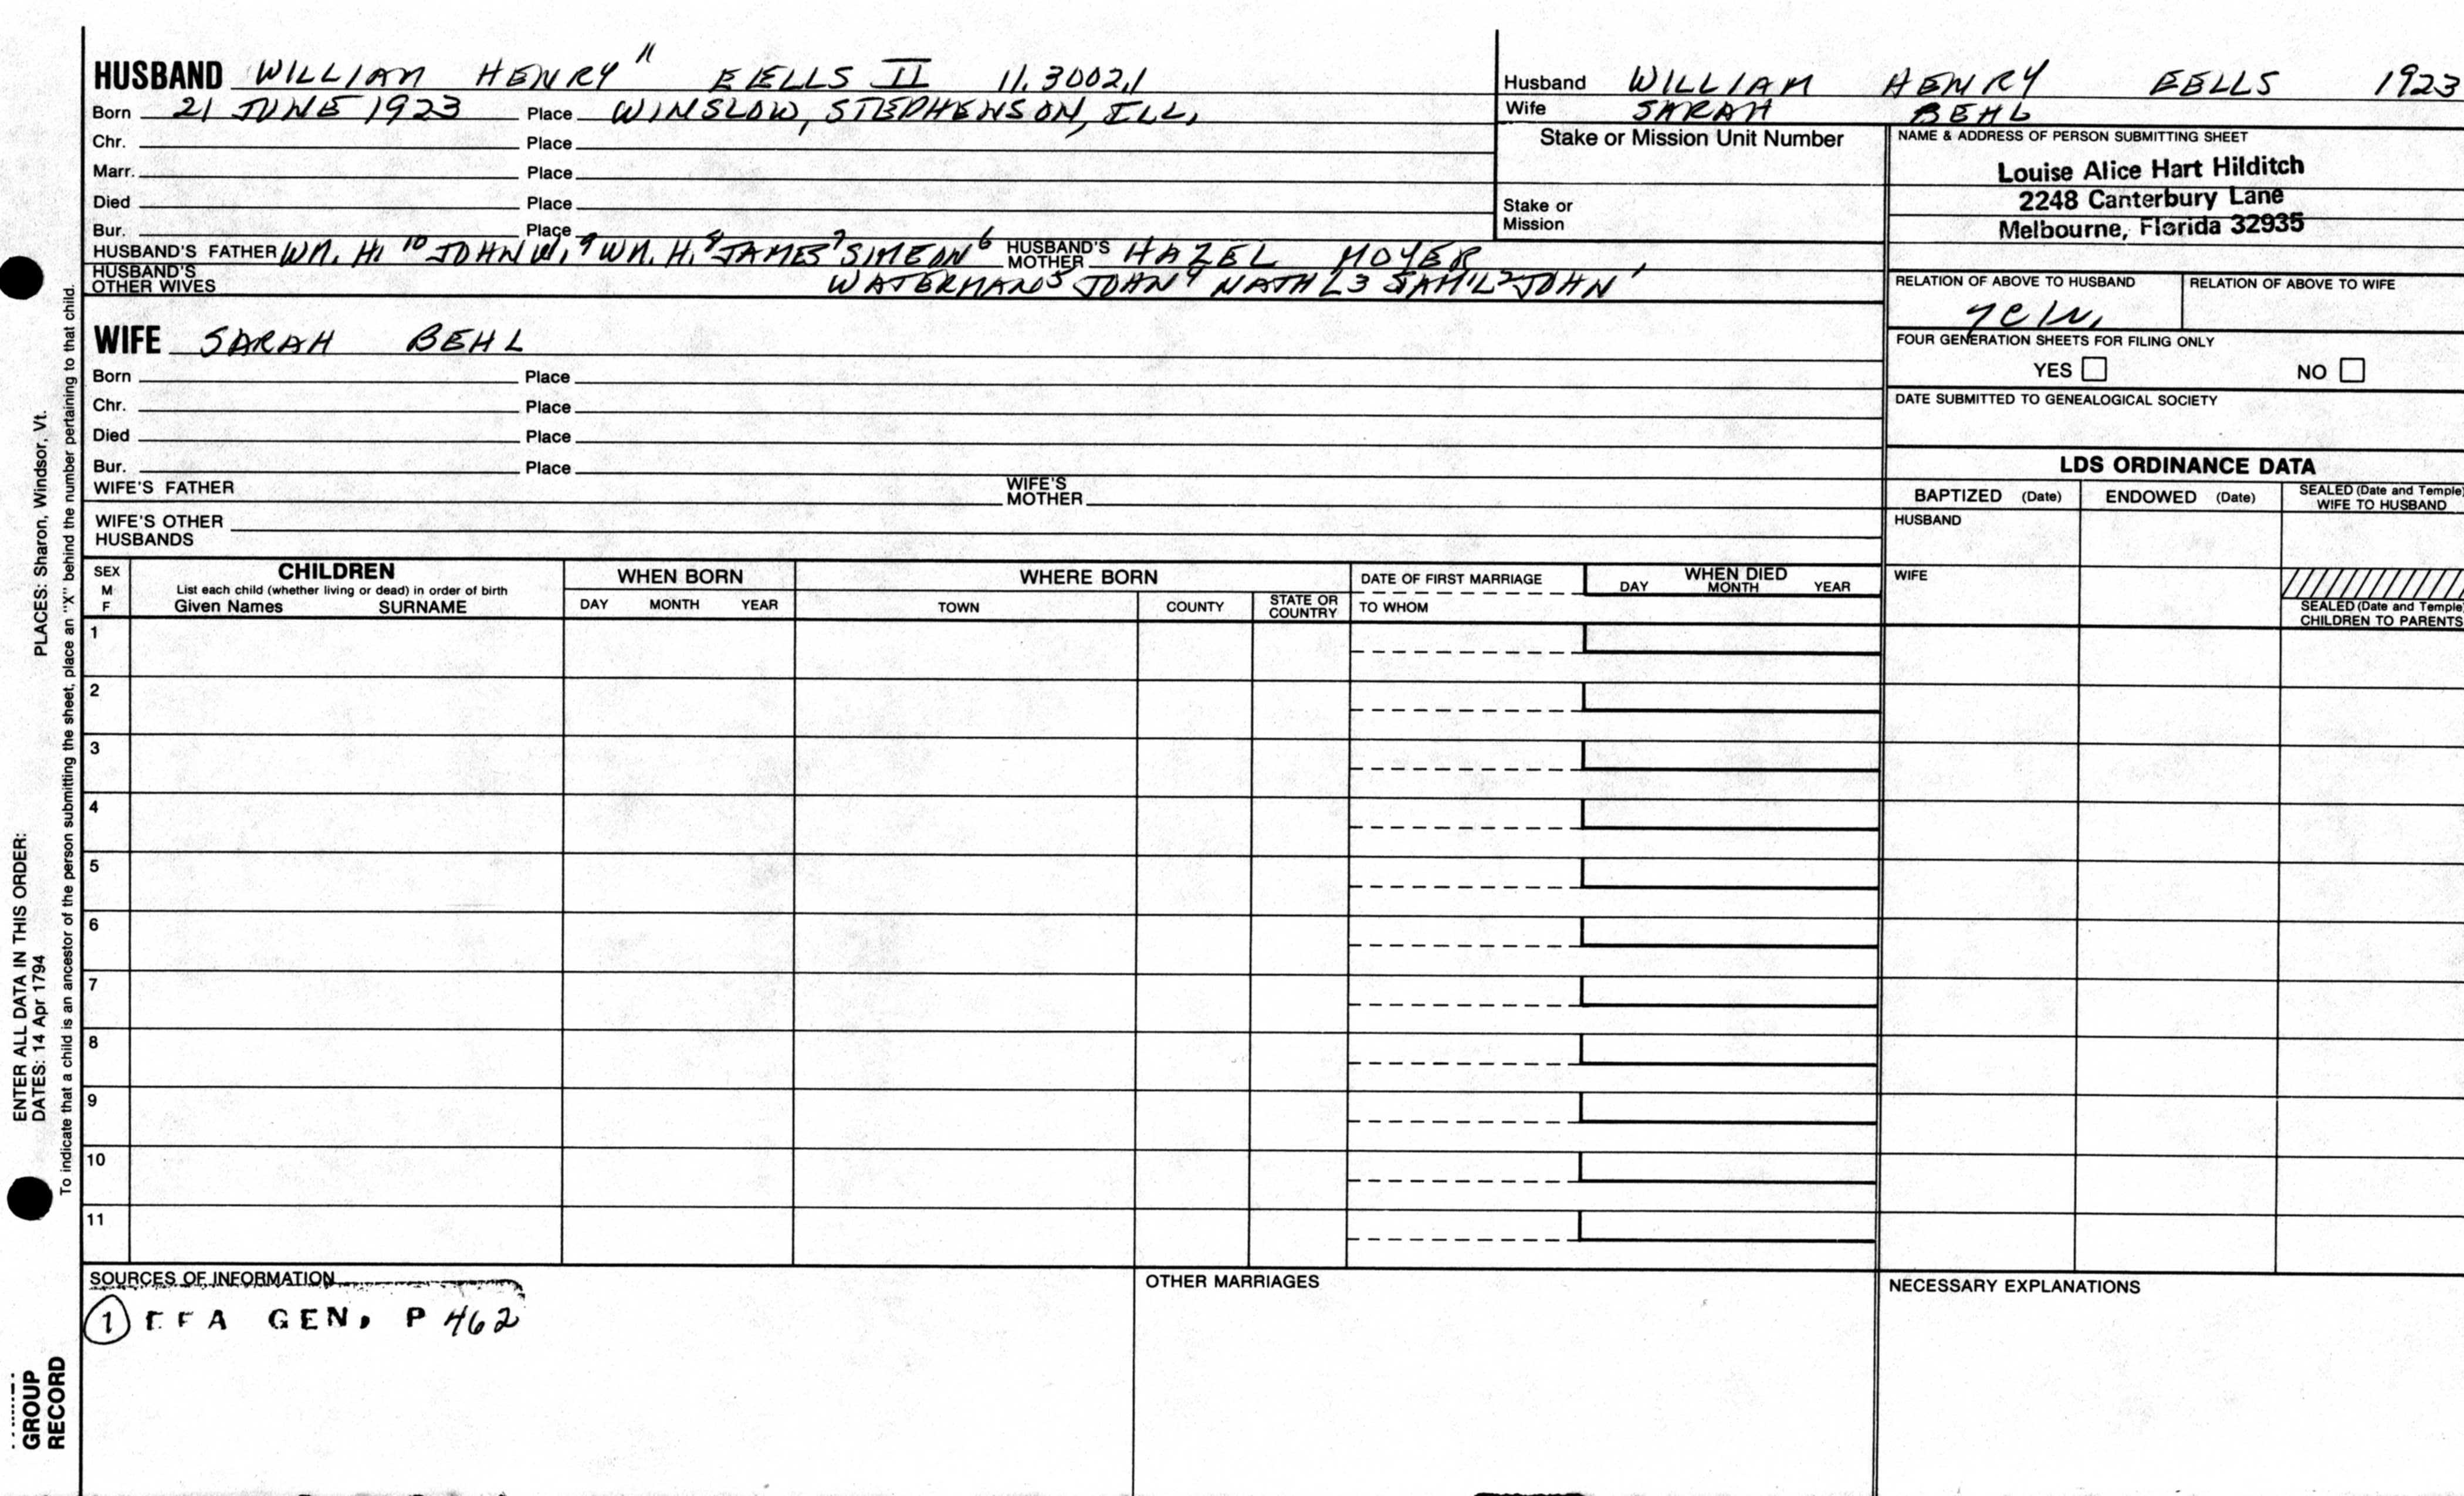 HUSBAND WILLIAM HENRY 11 EELLS II 11.3002.1
Born 21 JUNE 1923 Place WINSLOW, STEPHENSON, ILL.
Chr. Place
Marr. Place
Died Place
Bur. Place
HUSBAND'S FATHER WM. H. 10 JOHN W. 9 WM. H. 8 JAMES 7 SIMEON 6 HUSBAND'S MOTHER HAZEL MOYER
HUSBAND'S OTHER WIVES WATERMAN 5 JOHN 4 NATH'L 3 SAM'L 2 JOHN 1
WIFE SARAH BEHL
Born Place
Chr. Place
Died Place
Bur. Place
WIFE'S FATHER WIFE'S MOTHER
WIFE'S OTHER HUSBANDS
Husband WILLIAM HENRY EELLS 1923
Wife SARAH BEHL
Stake or Mission Unit Number
Stake or
Mission
NAME & ADDRESS OF PERSON SUBMITTING SHEET
Louise Alice Hart Hilditch
2248 Canterbury Lane
Melbourne, Florida 32935
RELATION OF ABOVE TO HUSBAND RELATION OF ABOVE TO WIFE
FOUR GENERATION SHEETS FOR FILING ONLY
YES NO
DATE SUBMITTED TO GENEALOGICAL SOCIETY
LDS ORDINANCE DATA
BAPTIZED (Date) ENDOWED (Date) SEALED (Date and Temple) WIFE TO HUSBAND
HUSBAND
WIFE
SEALED (Date and Temple) CHILDREN TO PARENTS
SEX M F
CHILDREN
List each child (whether living or dead) in order of birth
Given Names SURNAME
WHEN BORN
DAY MONTH YEAR
WHERE BORN
TOWN COUNTY STATE OR COUNTRY
DATE OF FIRST MARRIAGE
TO WHOM
WHEN DIED
DAY MONTH YEAR
1
2
3
4
5
6
7
8
9
10
11
SOURCES OF INFORMATION
1 EFA GEN. P 462
OTHER MARRIAGES
NECESSARY EXPLANATIONS
ENTER ALL DATA IN THIS ORDER:
DATES: 14 Apr 1794 PLACES: Sharon, Windsor, Vt.
To indicate that a child is an ancestor of the person submitting the sheet, place an "X" behind the number pertaining to that child.
GROUP
RECORD